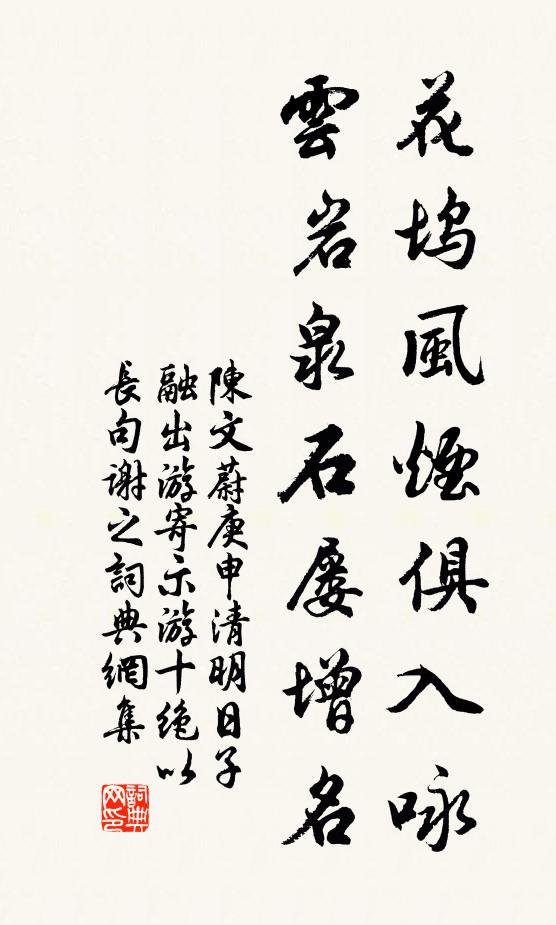 花塢風煙俱入咏
雲岩泉石屡增名
陳文蔚庚申清明日子
融出游寄示游十絶以
長句謝之詞典網集
詞典网印